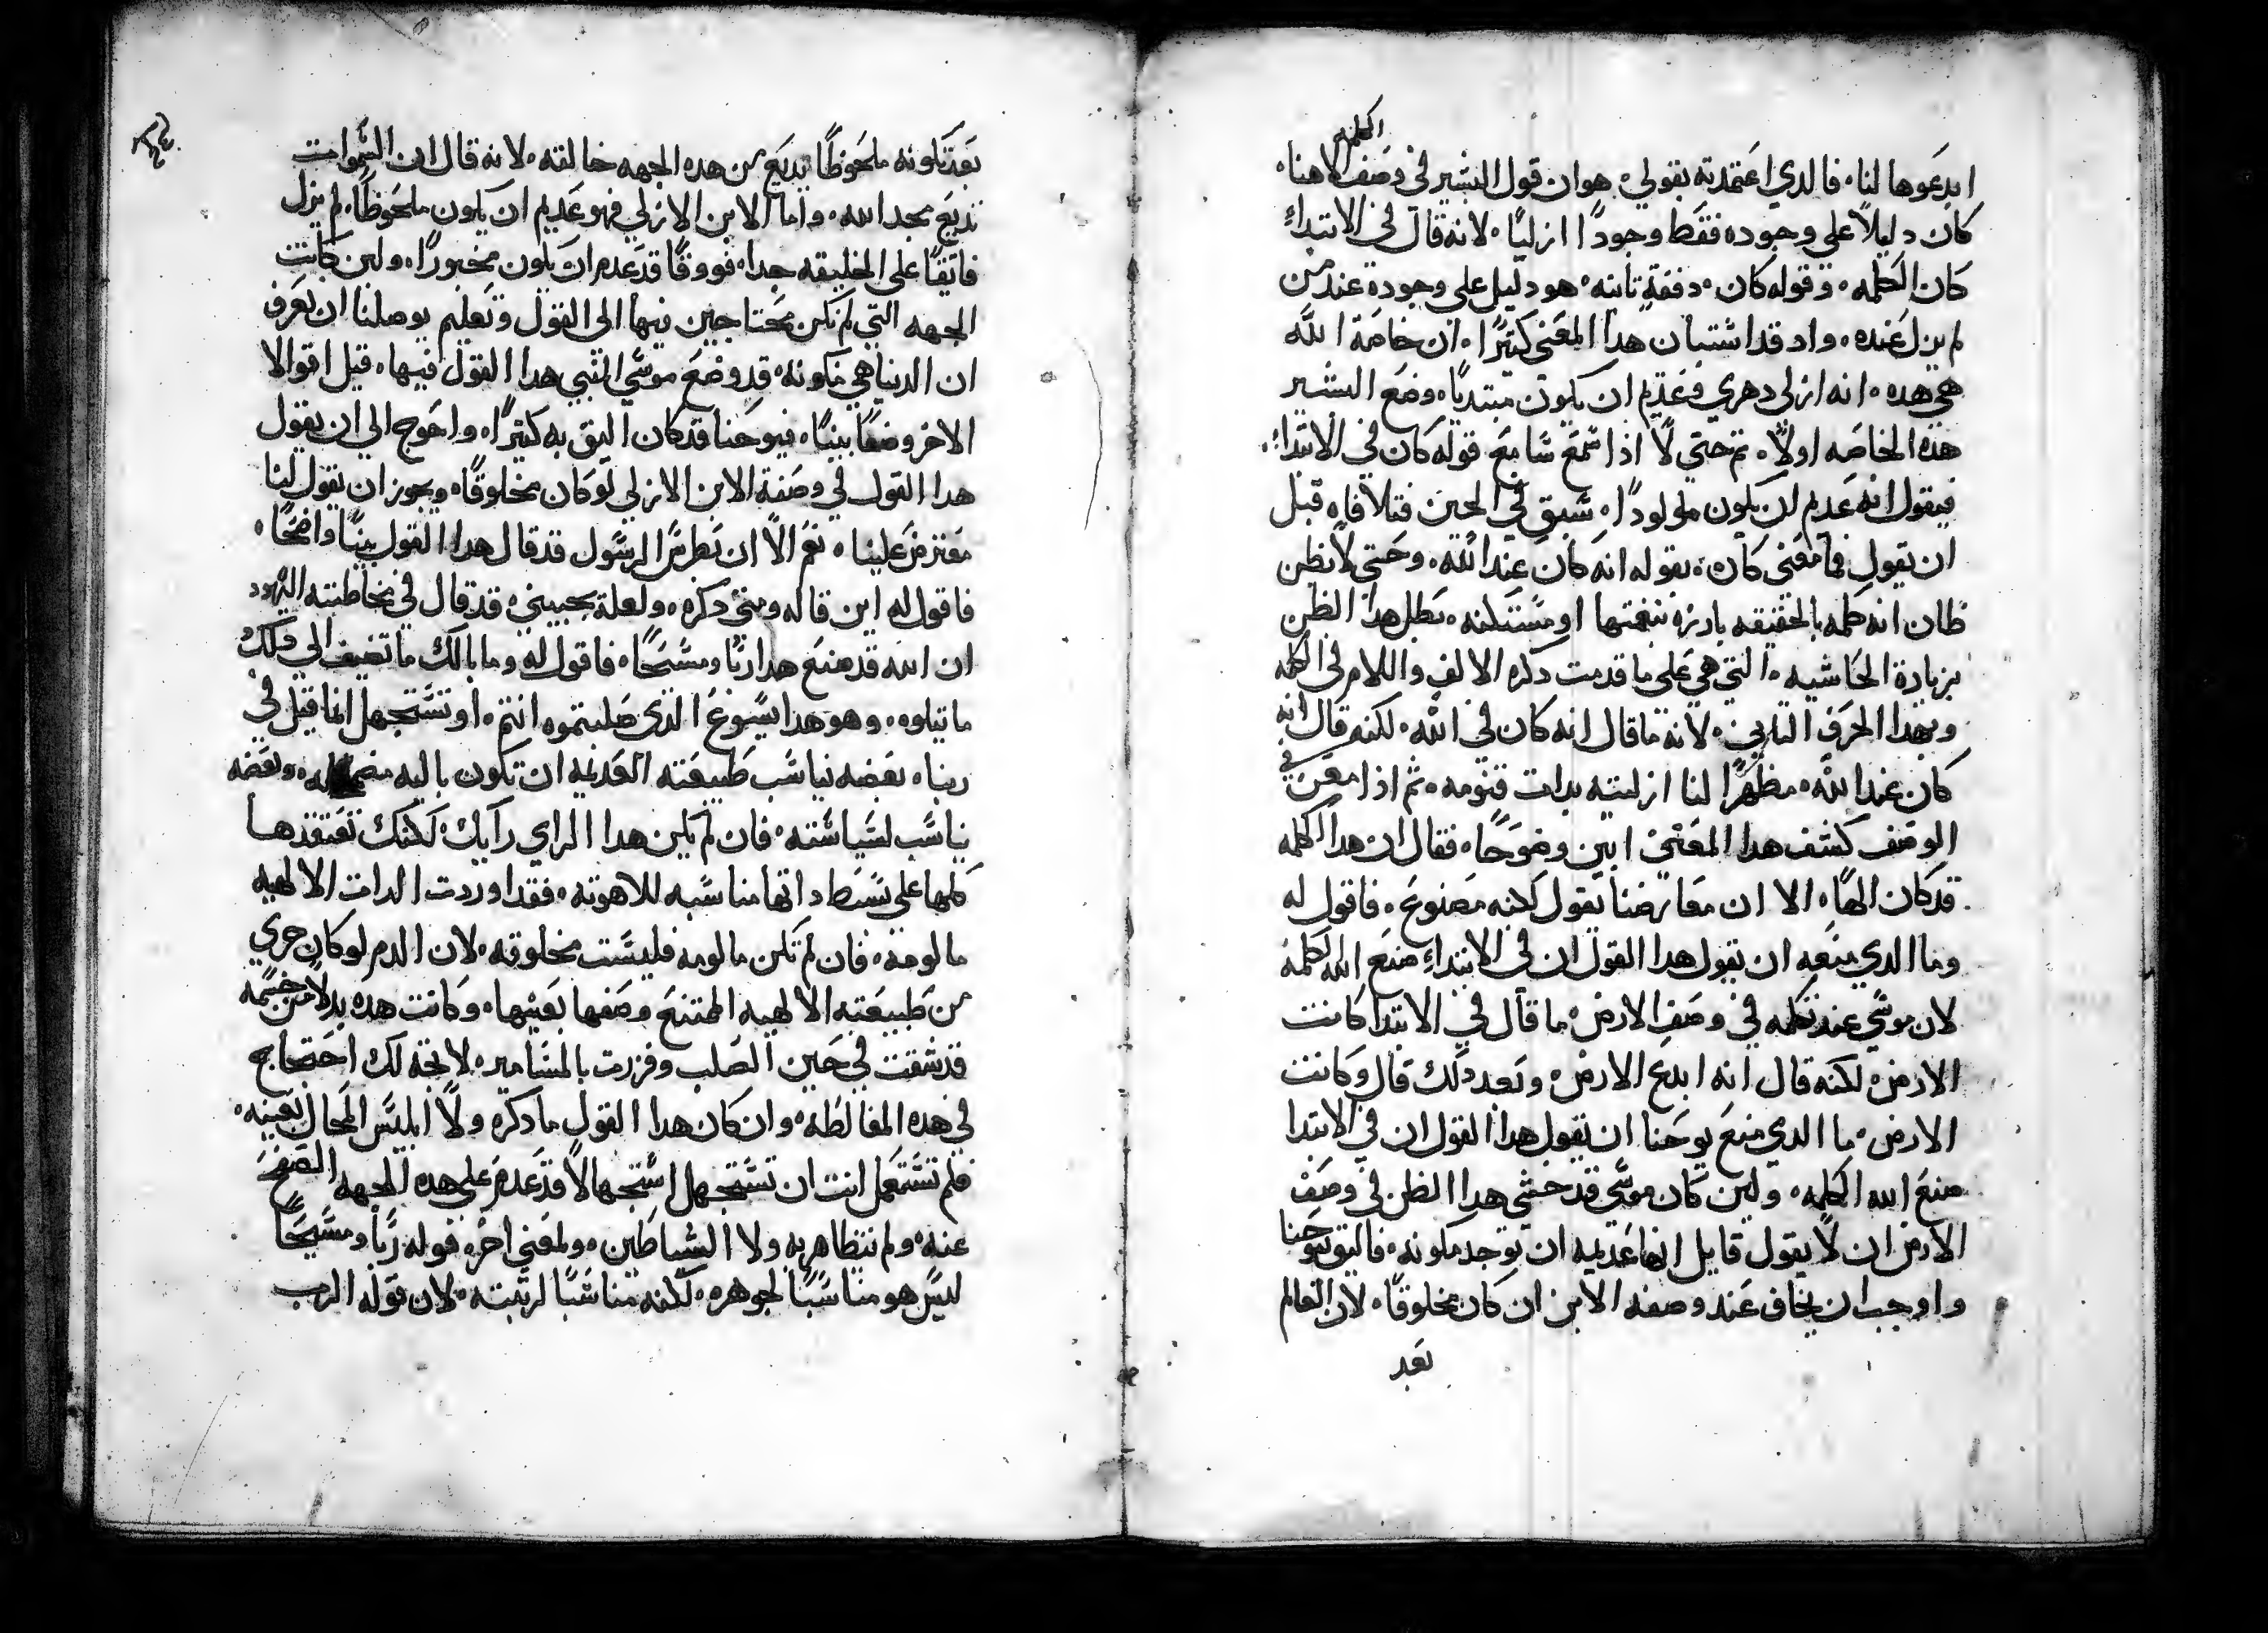 الكلمه
ابدعوها لنا. فالدي اعتمدته بقولي. هو ان قول البشير في وصف الاهنا.
كان دليلاً علي وجوده فقط وجوداً ازلياً. لانه قال في الابتداءِ
كان الكلمه. وقوله كان. دفعةٍ تانيه. هو دليل علي وجوده عند من
لم يزل عنده. واد قد اشتبان هدا المعني كتيراً. ان خاصة الله
هي هده. انه ازلي دهري فعديم ان يكون مبتدياً. وضع البشير
هده الخاصه اولاً. تم حتي لا اذا سمع سامع قوله كان في الابتداءِ.
فيقول انه عدم ان يكون مولوداً. سبق في الحين فتلافاه قبل
ان يقول فما معني كان. بقوله انه كان عند الله. وحتي لا يظن
ظان انه كلمه بالحقيقه بارزه بنغمتها او مستكنه. بطل هدا الظن
بزيادة الحاشيه. التي هي علي ما قدمت دكره الالف واللام في الكلمه
وبهدا الحرف التاني. لانه ما قال انه كان في الله. لكنه قال انه
كان عند الله. مظهراً لنا ازليته بدات قنومه. تم اذا امعن في
الوصف كشف هدا المعني ابين وضوحاً. فقال ان هدا الكلمه
قد كان الهاً. الا ان معارضنا يقول لكنه مصنوع. فاقول له
وما الدي منعه ان يقول هدا القول ان في الابتداءِ صنع الله الكلمه
لان موسي عند تكلمه في وصف الارض. ما قال في الابتدا كانت
الارض. لكنه قال انه ابدع الارض. وبعد دلك قال وكانت
الارض. ما الدي منع يوحنا ان يقول هدا القول ان في الابتدا
صنع الله الكلمه. ولين كان موسي قد خشي هدا الظن في وصف
الارض ان لا يقول قايل انها عديمه ان توجد مكونه. فاليق بيوحنا
واوجب ان يخاف عند وصفه الابن ان كان مخلوقاً. لان العالم
بعد
بعد تكونه ملحوظاً يديع من هده الجهه خالقه. لانه قال ان السموات
تديع مجد الله. واما الابن الازلي فهو عديم ان يكون ملحوظاً. لم يزل
فايقاً علي الخليقه جداً. فووقاً قد عدم ان يكون مخبوراً. ولين كانت
الجهه التي لم نكن محتاجين فيها الي القول وتعليم يوصلنا ان نعرف
ان الدنيا هي مكونه. قد وضع موسي النبي هدا القول فيها. قبل اقوالا
الاخر وضعاً بيناً. فيوحنا قد كان اليق به كتيراً. واحوج الي ان يقول
هدا القول في وصفة الابن الازلي لو كان مخلوقاً. ويجوز ان يقول لنا
معترض علينا. نعم الا ان بطرس الرسول قد قال هدا القول بيناً واضحاً.
فاقول له اين قاله ومتي دكره. ولعله يجيبني. قد قال في مخاطبته اليهود
ان الله قد صنع هدا رباً ومسيحاً. فاقول له وما بالك ما تضيف الي دلك
ما تيلوه. وهو هدا يسوع الدي صلبتموه انتم. او تستجهل انما قيل في
ربنا. بعضه يناسب طبيعته العديمه ان تكون باليه وبعضه
يناسب لسياسته. فان لم يكن هدا الراي رايك. لكنك تعتقدها
كلها علي بسط داتها مناسبه للاهوته. فقد اوردت الدات الالهيه
مالومه. فان لم تكن مالومه فليست مخلوقه. لان الدم لو كان جري
من طبيعته الالهيه الممتنع وصفها بعينها. وكانت هده بدلاً من جسمه
قد شققت في حين الصلب وفزرت بالمسامير. لا تجه لك احتجاج
في هده المغالطه. وان كان هدا القول ما دكره ولا ابليس المحال بعينه.
فلم تستعمل انت ان تستجهل استجهالاً قد عدم علي هده الجهه الصفح
عنه. ولم يتظاهر به ولا الشياطين. ولمعني اخر. قوله رباً ومسيحاً
ليس هو مناسباً لجوهره. لكنه مناسباً لرتبته. لان قوله الرب